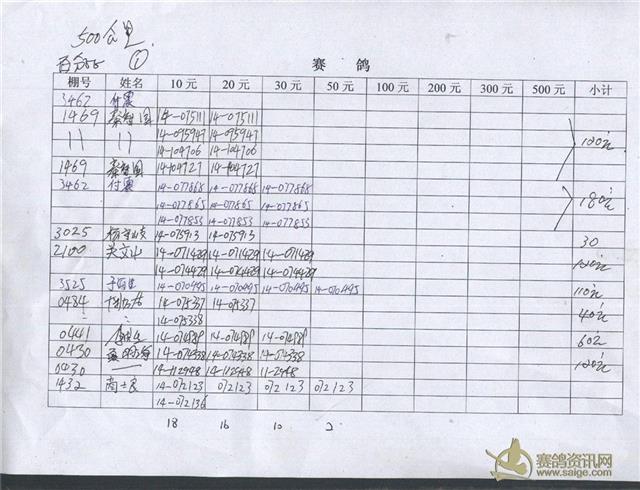 500公里
百分比 ①
赛 鸽
棚号 姓名 10元 20元 30元 50元 100元 200元 300元 500元 小计
3462 付震
1469 14-075111 14-075111
14-095947 14-095947
14-104706 14-104706
120元
1469 14-104727 14-104727
3462 付震 14-077868 14-077868 14-077868
14-077865 14-077865 14-077865
180元
14-077853 14-077853 14-077853
3025 14-075913 14-075913 30
2100 关文山 14-071429 14-071429 14-071429
14-074429 14-074429 14-074429
120元
3525 14-070495 14-070495 14-070495 14-070495 110元
0484 14-075337 14-075337
14-075338
40元
0441 14-074989 14-074989 14-074989 60元
0430 14-074338 14-074338 14-074338
0430 14-112948 14-112948 11-2948
120元
1432 商士良 14-072123 072123 072123 072123
14-072136
18 16 10 2
赛鸽资讯网
www.saige.com